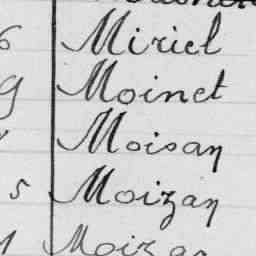 6 Miriel
9 Moinet
Moisan
5 Moizan
Moizan